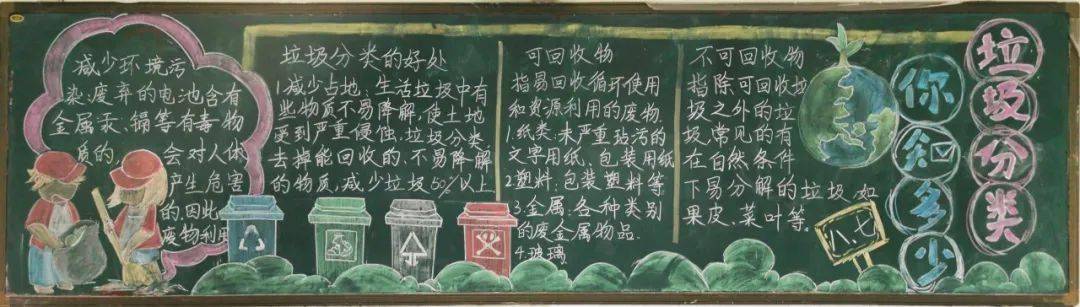 减少环境污
染:废弃的电池含有
金属汞、镉等有毒物
质的,会对人体
产生危害
的,因此
废物利用
垃圾分类的好处
1.减少占地:生活垃圾中有
些物质不易降解,使土地
受到严重侵蚀,垃圾分类
去掉能回收的、不易降解
的物质,减少垃圾50%以上
可回收物
指易回收循环使用
和资源利用的废物。
1.纸类:未严重玷污的
文字用纸、包装用纸
2.塑料:包装塑料等
3.金属:各种类别
的废金属物品.
4.玻璃
不可回收物
指除可回收垃
圾之外的垃
圾,常见的有
在自然条件
下易分解的垃圾,如
果皮、菜叶等。
八、七
垃圾分类
你知多少